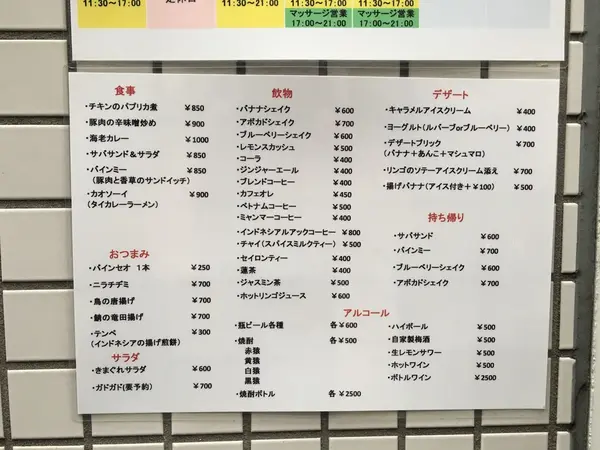 11:30～17:00
定休日
11:30～21:00
11:30～17:00
11:30～17:00
マッサージ営業
マッサージ営業
17:00～21:00
17:00～21:00
食事
・チキンのパプリカ煮 ￥850
・豚肉の辛味噌炒め ￥900
・海老カレー ￥1000
・サバサンド＆サラダ ￥850
・バインミー ￥850
(豚肉と香草のサンドイッチ)
・カオソーイ ￥900
(タイカレーラーメン)
おつまみ
・バインセオ 1本 ￥250
・ニラチヂミ ￥700
・鳥の唐揚げ ￥700
・鯖の竜田揚げ ￥700
・テンペ ￥300
(インドネシアの揚げ煎餅)
サラダ
・きまぐれサラダ ￥600
・ガドガド(要予約) ￥700
飲物
・バナナシェイク ￥600
・アボカドシェイク ￥700
・ブルーベリーシェイク ￥600
・レモンスカッシュ ￥500
・コーラ ￥400
・ジンジャーエール ￥400
・ブレンドコーヒー ￥400
・カフェオレ ￥450
・ベトナムコーヒー ￥500
・ミャンマーコーヒー ￥400
・インドネシアルアックコーヒー ￥800
・チャイ(スパイスミルクティー) ￥500
・セイロンティー ￥400
・蓮茶 ￥400
・ジャスミン茶 ￥500
・ホットリンゴジュース ￥600
デザート
・キャラメルアイスクリーム ￥400
・ヨーグルト(ルバーブorブルーベリー) ￥400
・デザートブリック ￥700
(バナナ＋あんこ＋マシュマロ)
・リンゴのソテーアイスクリーム添え ￥700
・揚げバナナ(アイス付き＋￥100) ￥500
持ち帰り
・サバサンド ￥600
・バインミー ￥700
・ブルーベリーシェイク ￥600
・アボカドシェイク ￥700
アルコール
・瓶ビール各種 各￥600
・焼酎 各￥500
赤猿
黄猿
白猿
黒猿
・焼酎ボトル 各 ￥2500
・ハイボール ￥500
・自家製梅酒 ￥500
・生レモンサワー ￥500
・ホットワイン ￥500
・ボトルワイン ￥2500